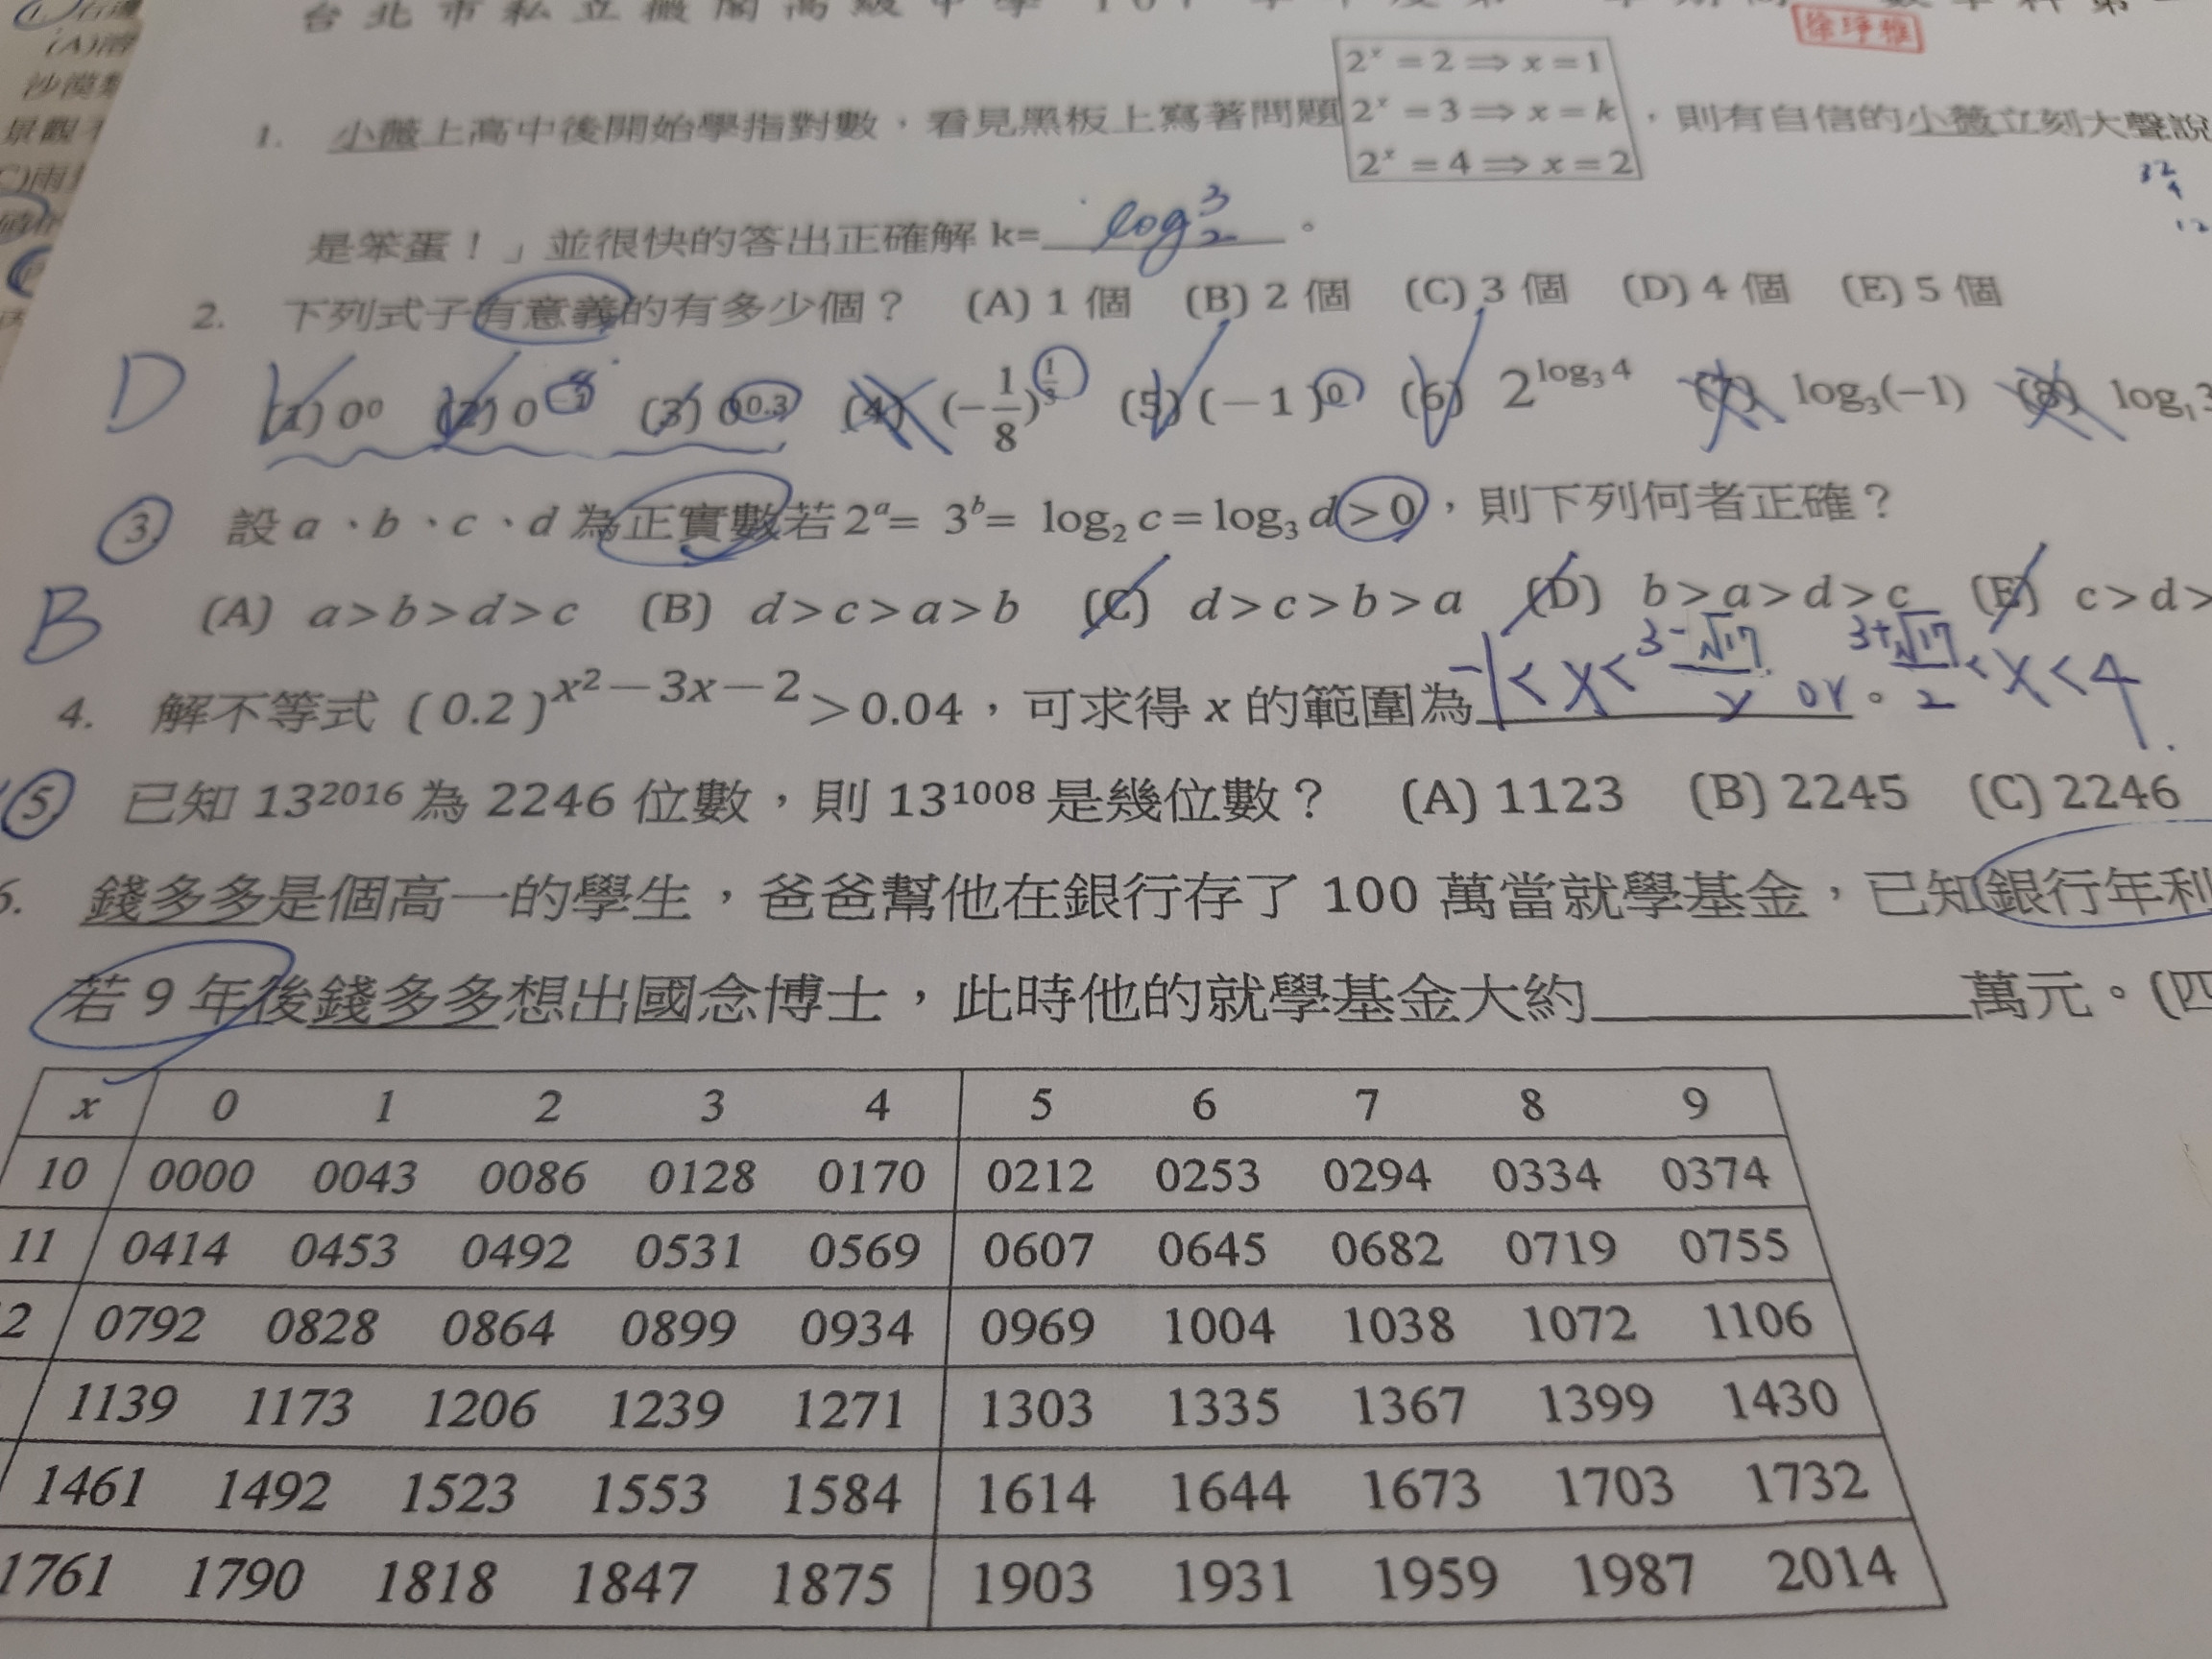 台北市私立薇閣高級中學
徐玶雅
2ˣ = 2 ⟹ x = 1
1. 小薇上高中後開始學指對數，看見黑板上寫著問題 2ˣ = 3 ⟹ x = k ，則有自信的小薇立刻大聲說
2ˣ = 4 ⟹ x = 2
是笨蛋！」並很快的答出正確解 k= log₂³ 。
2. 下列式子有意義的有多少個？ (A) 1 個 (B) 2 個 (C) 3 個 (D) 4 個 (E) 5 個
D (1) 0⁰ (2) 0 (3) 0^0.3 (4) (−1/8)^(1/3) (5) (−1)⁰ (6) 2^(log₃4) (7) log₃(−1) (8) log₁3
3. 設 a、b、c、d 為正實數若 2ᵃ= 3ᵇ= log₂ c = log₃ d > 0，則下列何者正確？
B (A) a > b > d > c (B) d > c > a > b (C) d > c > b > a (D) b > a > d > c (E) c > d >
4. 解不等式 (0.2)^(x²−3x−2) > 0.04，可求得 x 的範圍為 -1 < x < (3-√17)/2 or (3+√17)/2 < x < 4 。
5. 已知 13²⁰¹⁶ 為 2246 位數，則 13¹⁰⁰⁸ 是幾位數？ (A) 1123 (B) 2245 (C) 2246
6. 錢多多是個高一的學生，爸爸幫他在銀行存了 100 萬當就學基金，已知銀行年利
若 9 年後錢多多想出國念博士，此時他的就學基金大約 萬元。(四
x 0 1 2 3 4 5 6 7 8 9
10 0000 0043 0086 0128 0170 0212 0253 0294 0334 0374
11 0414 0453 0492 0531 0569 0607 0645 0682 0719 0755
2 0792 0828 0864 0899 0934 0969 1004 1038 1072 1106
1139 1173 1206 1239 1271 1303 1335 1367 1399 1430
1461 1492 1523 1553 1584 1614 1644 1673 1703 1732
1761 1790 1818 1847 1875 1903 1931 1959 1987 2014